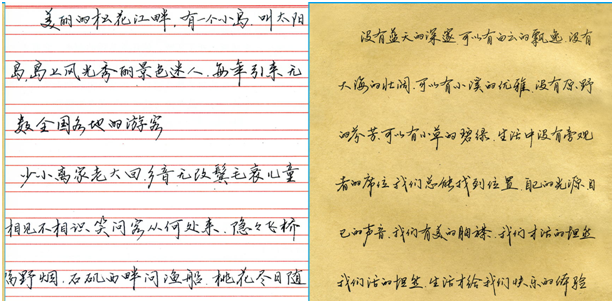 美丽的松花江畔,有一个小岛,叫太阳
岛,岛上风光秀丽景色迷人,每年引来无
数全国各地的游客
少小离家老大回,乡音无改鬓毛衰儿童
相见不相识,笑问客从何处来,隐々飞桥
隔野烟,石矶西畔问渔船,桃花尽日随
没有蓝天的深邃,可以有白云的飘逸,没有
大海的壮阔,可以有小溪的优雅,没有原野
的芬芳,可以有小草的碧绿,生活中没有旁观
者的席位,我们总能找到位置,自己的光源,自
己的声音,我们有美的胸襟,我们才活的坦然
我们活的坦然,生活才给我们快乐的体验